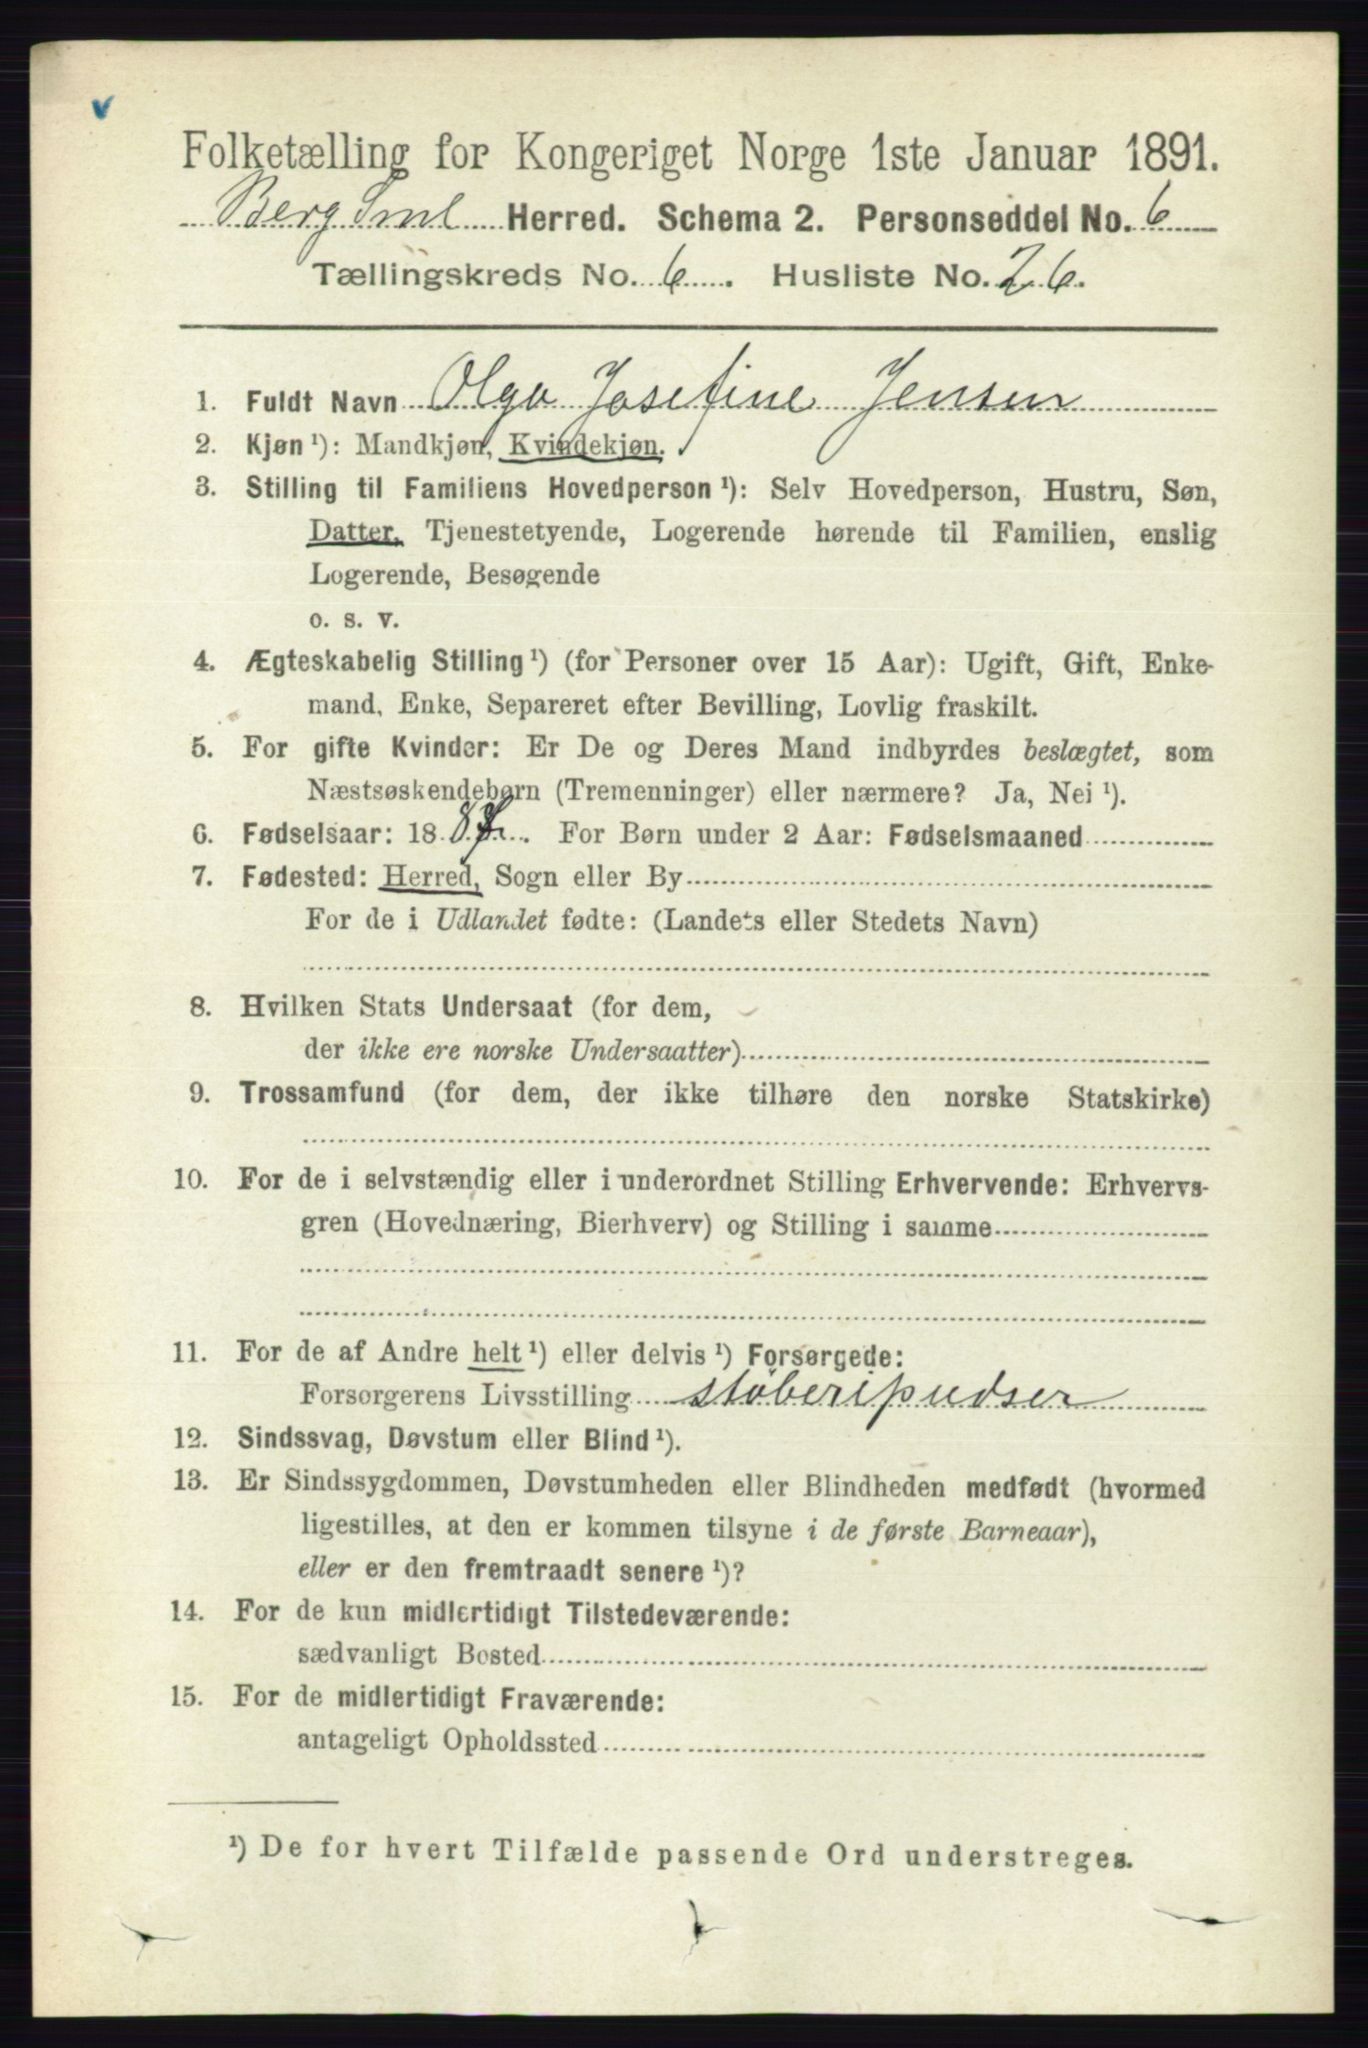 v
Folketælling for Kongeriget Norge 1ste Januar 1891.
Berg Sml Herred. Schema 2. Personseddel No. 6
Tællingskreds No. 6. Husliste No. 26.
1. Fuldt Navn Olga Josefine Jensen
2. Kjøn ¹): Mandkjøn, Kvindekjøn.
3. Stilling til Familiens Hovedperson ¹): Selv Hovedperson, Hustru, Søn,
Datter, Tjenestetyende, Logerende hørende til Familien, enslig
Logerende, Besøgende
o. s. v.
4. Ægteskabelig Stilling ¹) (for Personer over 15 Aar): Ugift, Gift, Enke-
mand, Enke, Separeret efter Bevilling, Lovlig fraskilt.
5. For gifte Kvinder: Er De og Deres Mand indbyrdes beslægtet, som
Næstsøskendebørn (Tremenninger) eller nærmere? Ja, Nei ¹).
6. Fødselsaar: 18 . For Børn under 2 Aar: Fødselsmaaned
7. Fødested: Herred, Sogn eller By
For de i Udlandet fødte: (Landets eller Stedets Navn)
8. Hvilken Stats Undersaat (for dem,
der ikke ere norske Undersaatter)
9. Trossamfund (for dem, der ikke tilhøre den norske Statskirke)
10. For de i selvstændig eller i underordnet Stilling Erhvervende: Erhvervs-
gren (Hovednæring, Bierhverv) og Stilling i samme
11. For de af Andre helt ¹) eller delvis ¹) Forsørgede:
Forsørgerens Livsstilling støberipudser
12. Sindssvag, Døvstum eller Blind ¹).
13. Er Sindssygdommen, Døvstumheden eller Blindheden medfødt (hvormed
ligestilles, at den er kommen tilsyne i de første Barneaar),
eller er den fremtraadt senere ¹)?
14. For de kun midlertidigt Tilstedeværende:
sædvanligt Bosted
15. For de midlertidigt Fraværende:
antageligt Opholdssted
¹) De for hvert Tilfælde passende Ord understreges.